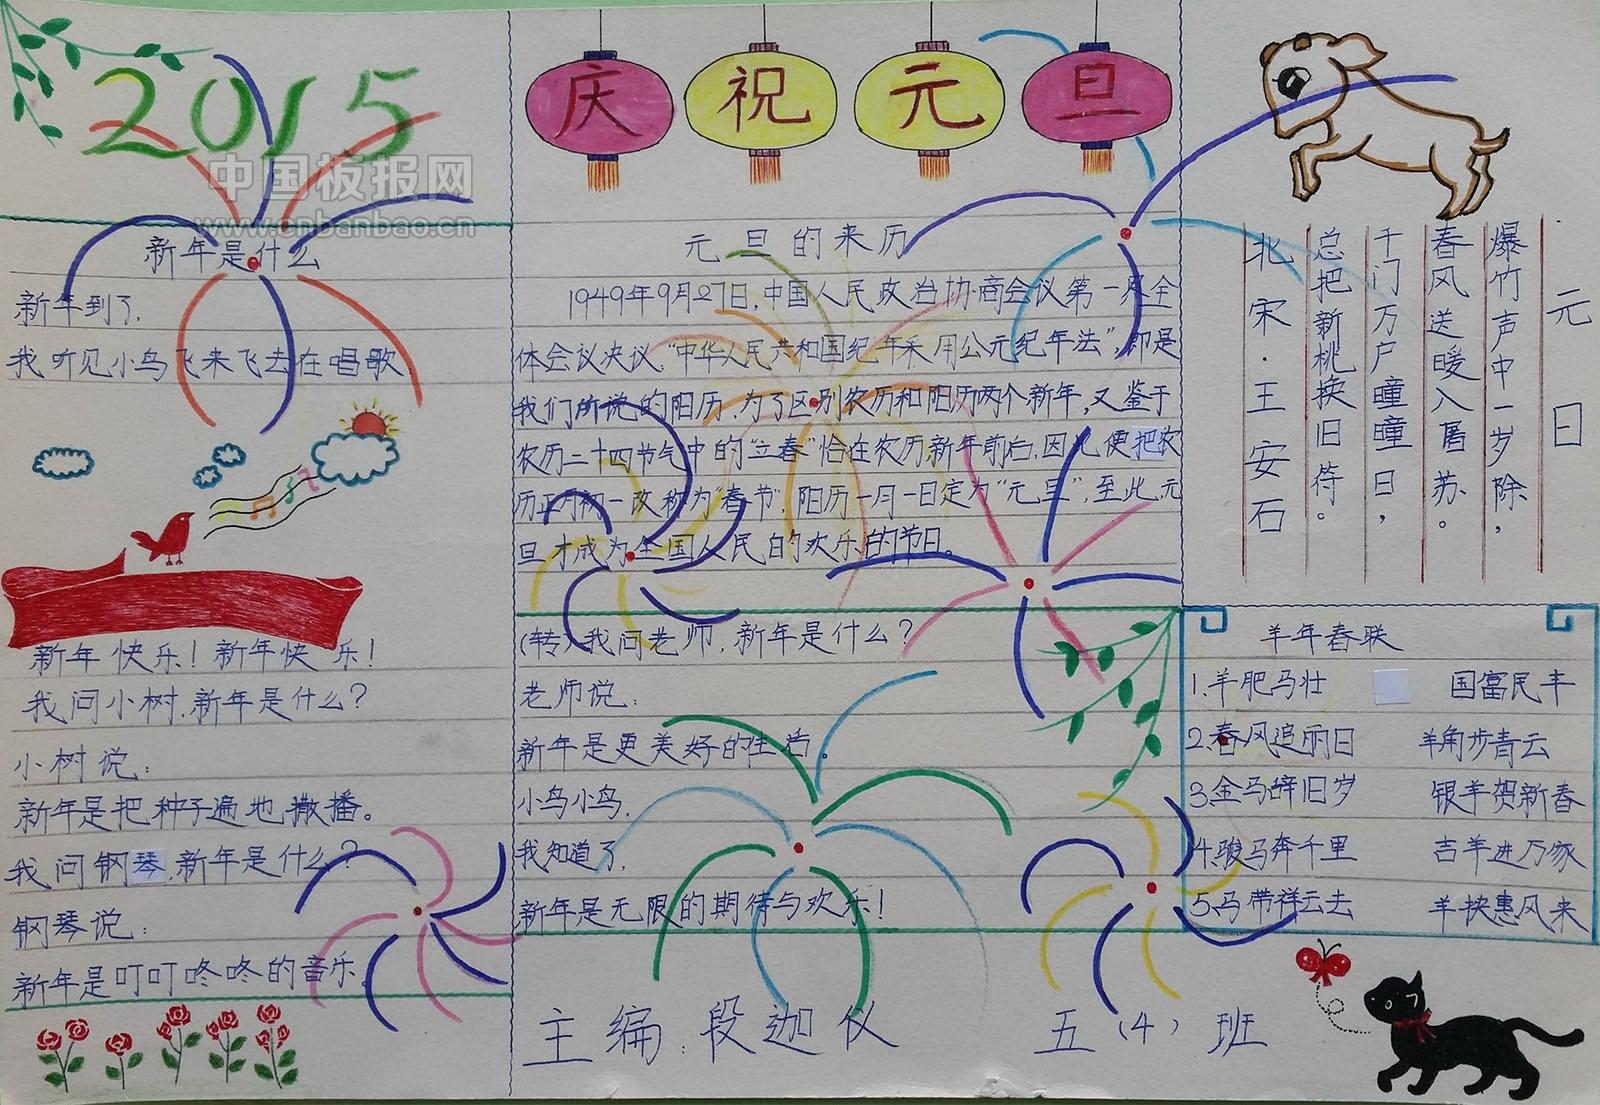 2015
中国板报网
www.cnbanbao.cn
新年是什么
新年到了,
我听见小鸟飞来飞去在唱歌,
新年快乐!新年快乐!
我问小树,新年是什么?
小树说:
新年是把种子遍地撒播。
我问钢琴,新年是什么?
钢琴说:
新年是叮叮咚咚的音乐。
庆祝元旦
元旦的来历
1949年9月27日,中国人民政治协商会议第一届全
体会议决议:"中华人民共和国纪年采用公元纪年法",即是
我们所说的阳历,为了区别农历和阳历两个新年,又鉴于
农历二十四节气中的"立春"恰在农历新年前后,因此便把农
历正月初一改称为"春节",阳历一月一日定为"元旦",至此,元
旦才成为全国人民的欢乐的节日。
(转)我问老师,新年是什么?
老师说:
新年是更美好的生活。
小鸟小鸟,
我知道了,
新年是无限的期待与欢乐!
元日
爆竹声中一岁除,
春风送暖入屠苏。
千门万户瞳瞳日,
总把新桃换旧符。
北宋·王安石
羊年春联
1.羊肥马壮 国富民丰
2.春风追丽日 羊角步青云
3.金马辞旧岁 银羊贺新春
4.骏马奔千里 吉羊进万家
5.马带祥云去 羊挟惠风来
主编:段迦仪
五(4)班